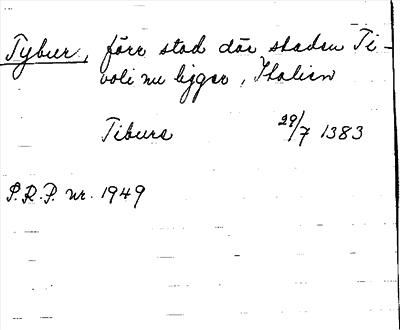 Tybur, förr stad där staden Ti-
voli nu ligger, Italien
Tiburs 29/7 1383
P.R.P. nr. 1949